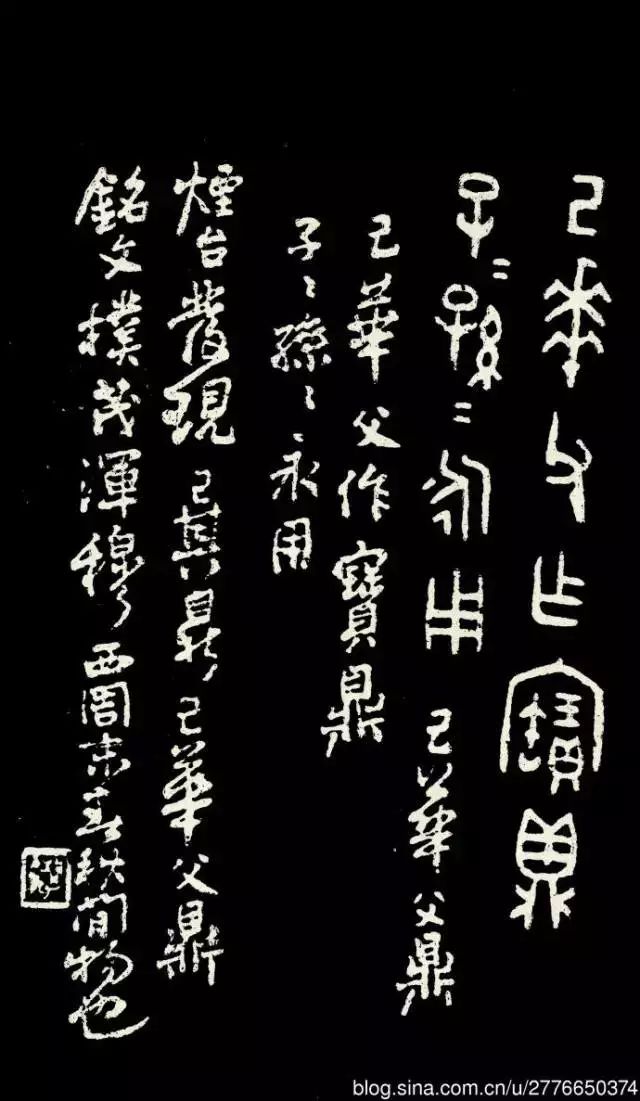 己華父作寶鼎
子=孫=永用 己華父鼎
己華父作寶鼎
子〻孫〻永用
煙台發現㠱鼎己華父鼎
銘文樸茂渾穆西周末春秋間物也
blog.sina.com.cn/u/2776650374